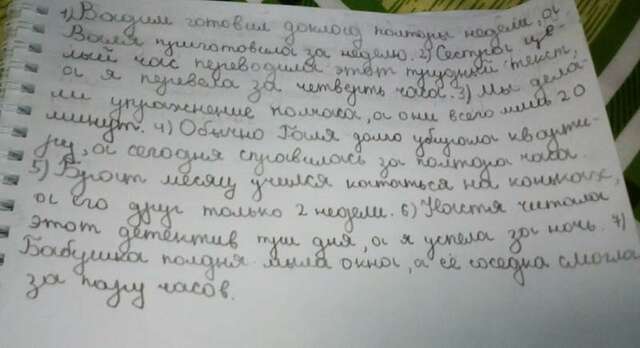 1) Вадим готовил доклад полторы недели, а
Валя приготовила за неделю. 2) Сестра це-
лый час переводила этот трудный текст,
а я перевела за четверть часа. 3) Мы дела-
ли упражнение полчаса, а они всего лишь 20
минут. 4) Обычно Галя долго убирала кварти-
ру, а сегодня справилась за полтора часа.
5) Брат месяц учился кататься на коньках,
а его друг только 2 недели. 6) Настя читала
этот детектив три дня, а я успела за ночь. 7)
Бабушка полдня мыла окна, а её соседка смогла
за пару часов.